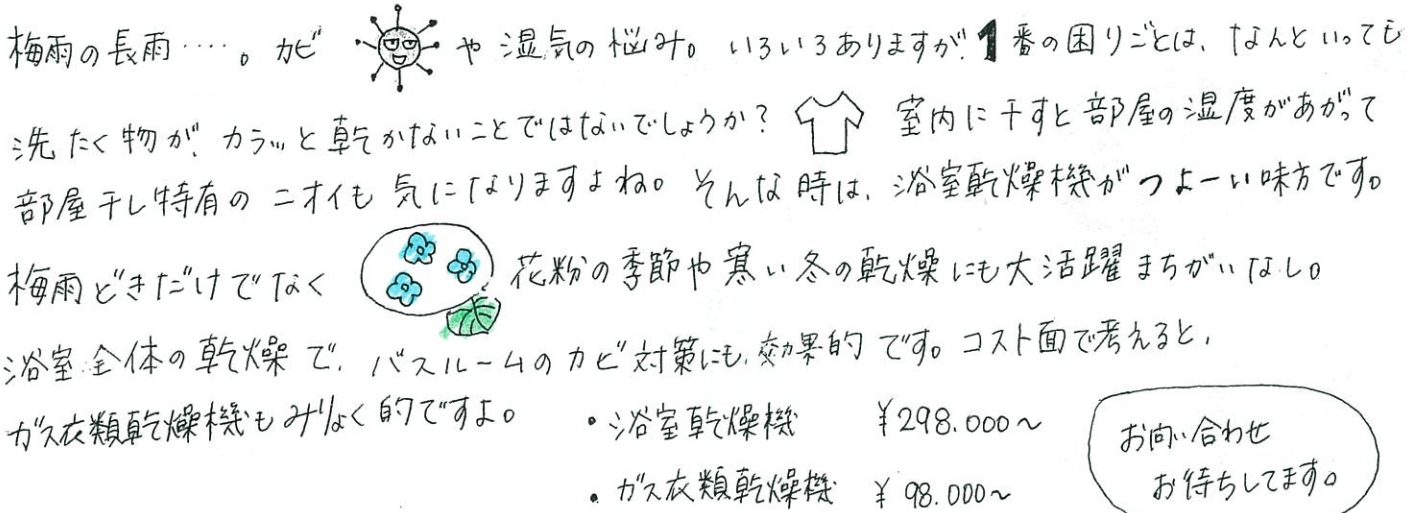 梅雨の長雨‥‥。カビ や湿気の悩み。いろいろありますが、1番の困りごとは、なんといっても
洗たく物が、カラッと乾かないことではないでしょうか? 室内に干すと部屋の湿度があがって
部屋干し特有のニオイも気になりますよね。そんな時は、浴室乾燥機がつよーい味方です。
梅雨どきだけでなく 花粉の季節や寒い冬の乾燥にも大活躍まちがいなし。
浴室全体の乾燥で、バスルームのカビ対策にも、効果的です。コスト面で考えると、
ガス衣類乾燥機もみりょく的ですよ。
・浴室乾燥機 ¥298.000~
・ガス衣類乾燥機 ¥98.000~
お問い合わせ
お待ちしてます。